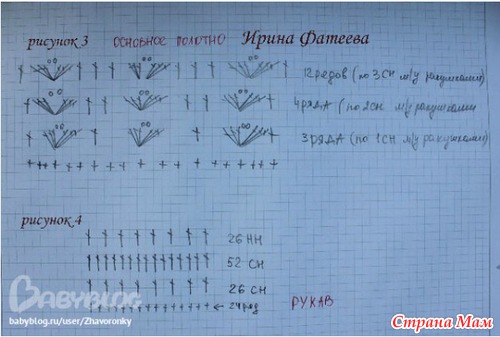 рисунок 3 ОСНОВНОЕ ПОЛОТНО Ирина Фатеева
12 рядов (по 3 СН м/у ракушками)
4 ряда (по 2 СН м/у ракушками
3 ряда (по 1 СН м/у ракушками)
рисунок 4
26 НН
52 СН
26 СН
← 24 ряд РУКАВ
BABYBLOG
babyblog.ru/user/Zhavoronky
Страна Мам